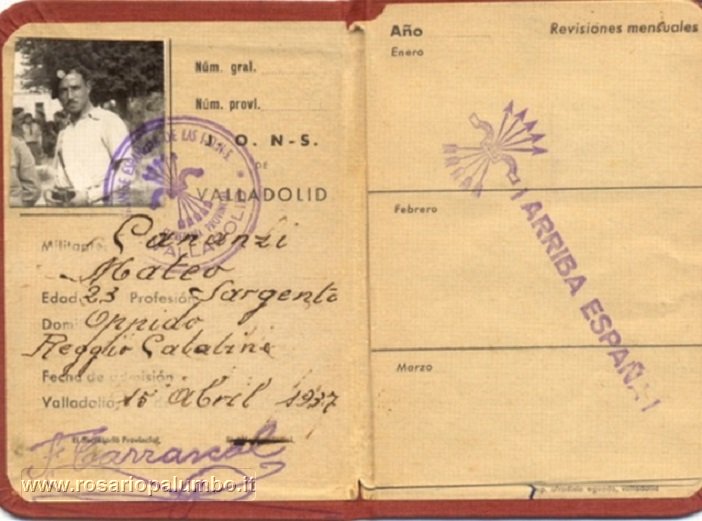 Núm. gral.
Núm. provl.
J. O. N-S.
DE
VALLADOLID
Militante: Cananzi
Mateo
Edad 23 Profesión Sargento
Domi Oppido
Reggio Calabria
Fecha de admisión
Valladolid, 15 de Abril 1937
El Secretario Provincial,
F. Carrascal
www.rosariopalumbo.it
DE LAS J.O.N.S.
VALLADOLID
Año
Revisiones mensuales
Enero
Febrero
Marzo
¡ARRIBA ESPAÑA!